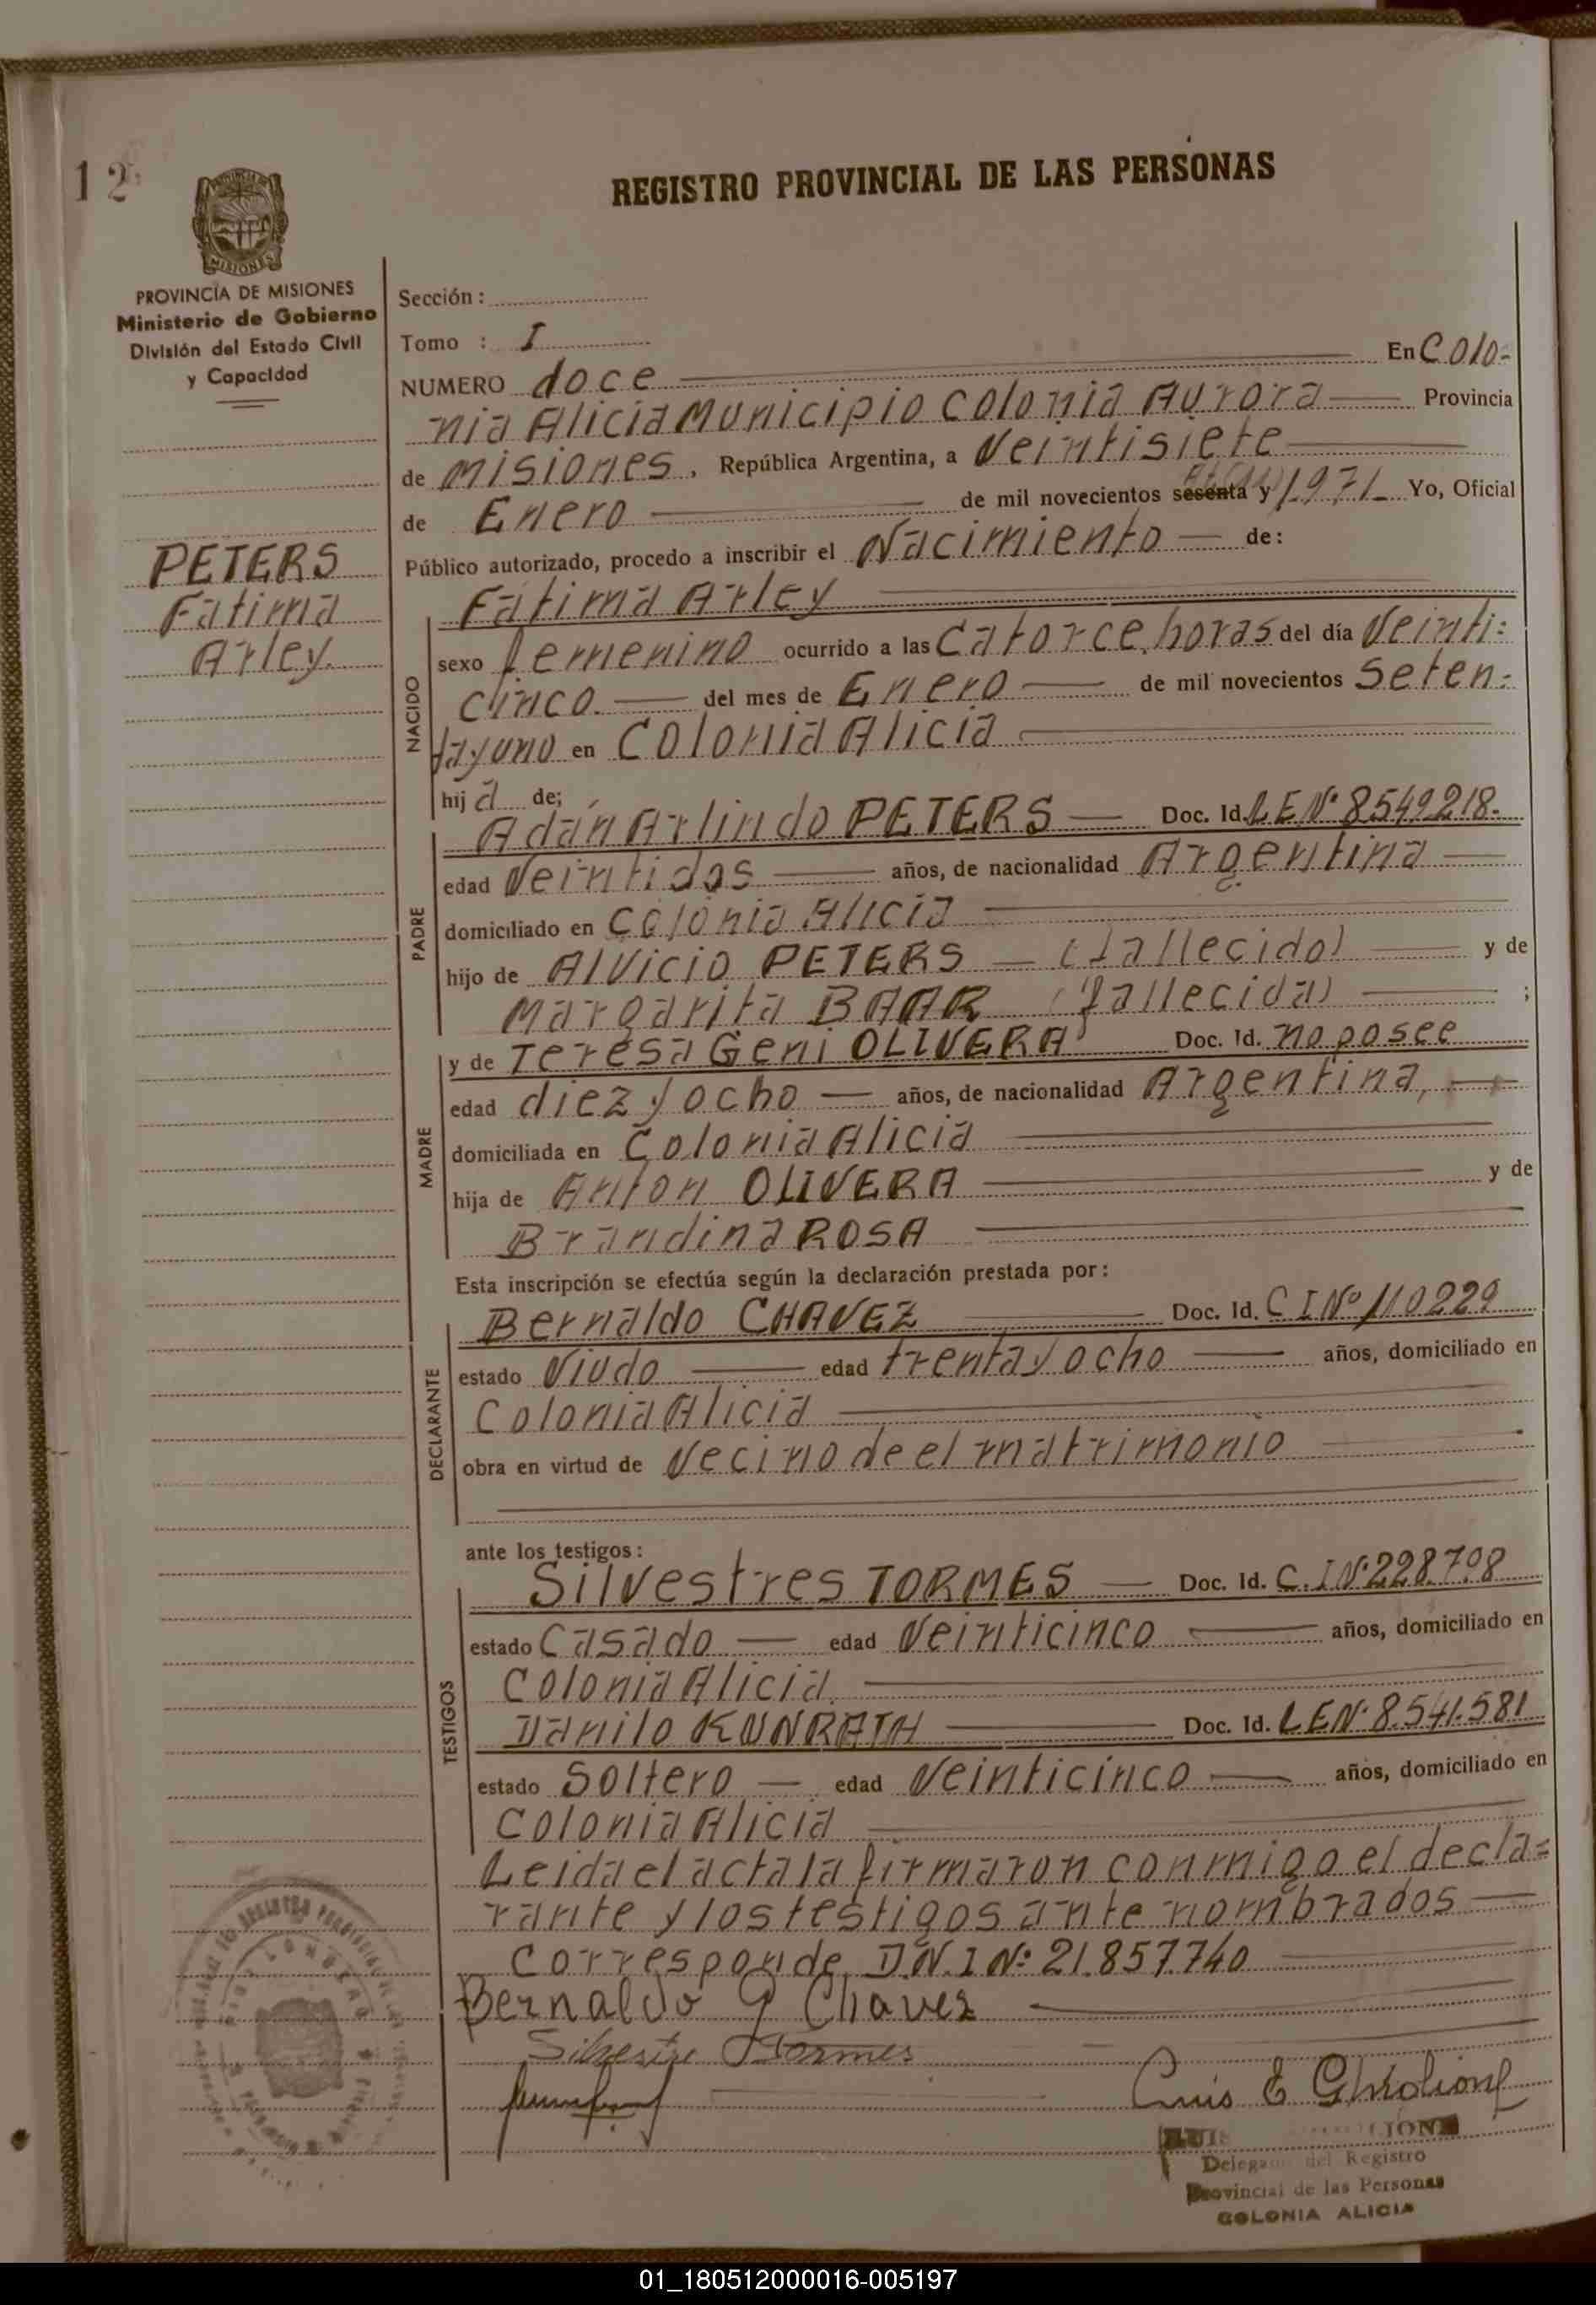 12
REGISTRO PROVINCIAL DE LAS PERSONAS
MISIONES
PROVINCIA DE MISIONES
Ministerio de Gobierno
División del Estado Civil
y Capacidad
PETERS
Fatima
Arley.
Sección :
Tomo : I
NUMERO doce En Colo-
nia Alicia Municipio Colonia Aurora Provincia
de Misiones, República Argentina, a Veintisiete
de Enero de mil novecientos sesenta y 1971 Yo, Oficial
Público autorizado, procedo a inscribir el Nacimiento de:
NACIDO
Fatima Arley
sexo femenino ocurrido a las Catorce horas del día Veinti=
cinco. del mes de Enero de mil novecientos Seten=
tayuno en Colonia Alicia
hija de;
PADRE
Adán Arlindo PETERS Doc. Id. L E Nº 8549218.
edad Veintidos años, de nacionalidad Argentina
domiciliado en Colonia Alicia
hijo de Alvicio PETERS (fallecido) y de
Margarita BAAR (fallecida) ;
MADRE
y de Teresa Geni OLIVERA Doc. Id. no posee
edad diez y ocho años, de nacionalidad Argentina,
domiciliada en Colonia Alicia
hija de Anton OLIVERA y de
Brandina ROSA
Esta inscripción se efectúa según la declaración prestada por:
DECLARANTE
Bernaldo CHAVEZ Doc. Id. C I Nº 110229
estado Viudo edad trenta y ocho años, domiciliado en
Colonia Alicia
obra en virtud de Vecino de el matrimonio
ante los testigos:
TESTIGOS
Silvestres TORMES Doc. Id. C. I Nº 228.708
estado Casado edad Veinticinco años, domiciliado en
Colonia Alicia.
Danilo KUNRATH Doc. Id. L E Nº 8.541.581
estado Soltero edad Veinticinco años, domiciliado en
Colonia Alicia
Leida el acta la firmaron conmigo el decla=
rante y los testigos ante nombrados
Corresponde D.N.I Nº 21.857.740
Bernaldo G Chavez
Silvestre Tormes
Luis E Ghiglione
Delegado del Registro
Provincial de las Personas
COLONIA ALICIA
01_180512000016-005197